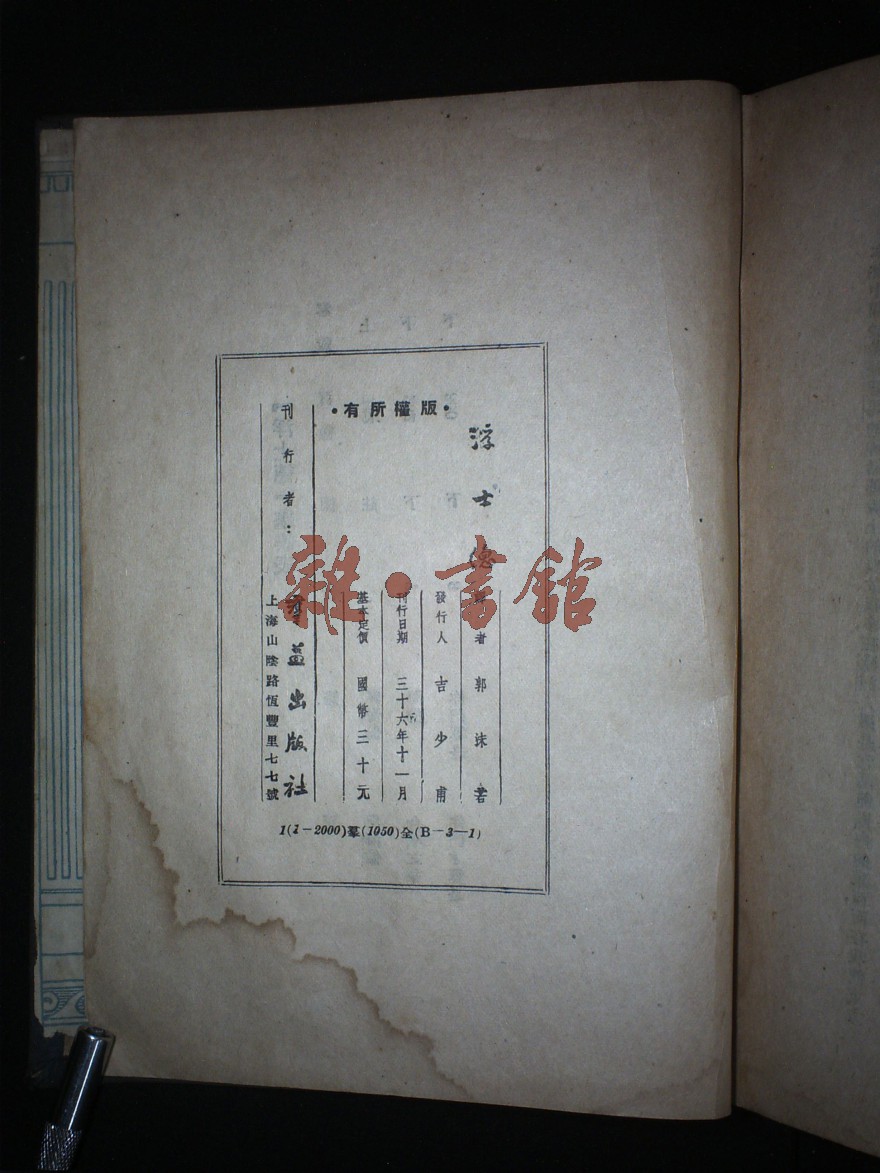 ·版權所有·
浮士德
者 郭沫若
發行人 吉少甫
刊行日期 三十六年十一月
基本定價 國幣三十元
刊行者：
羣益出版社
上海山陰路恆豐里七七號
1(1-2000)羣(1050)全(B-3-1)
雜·書館